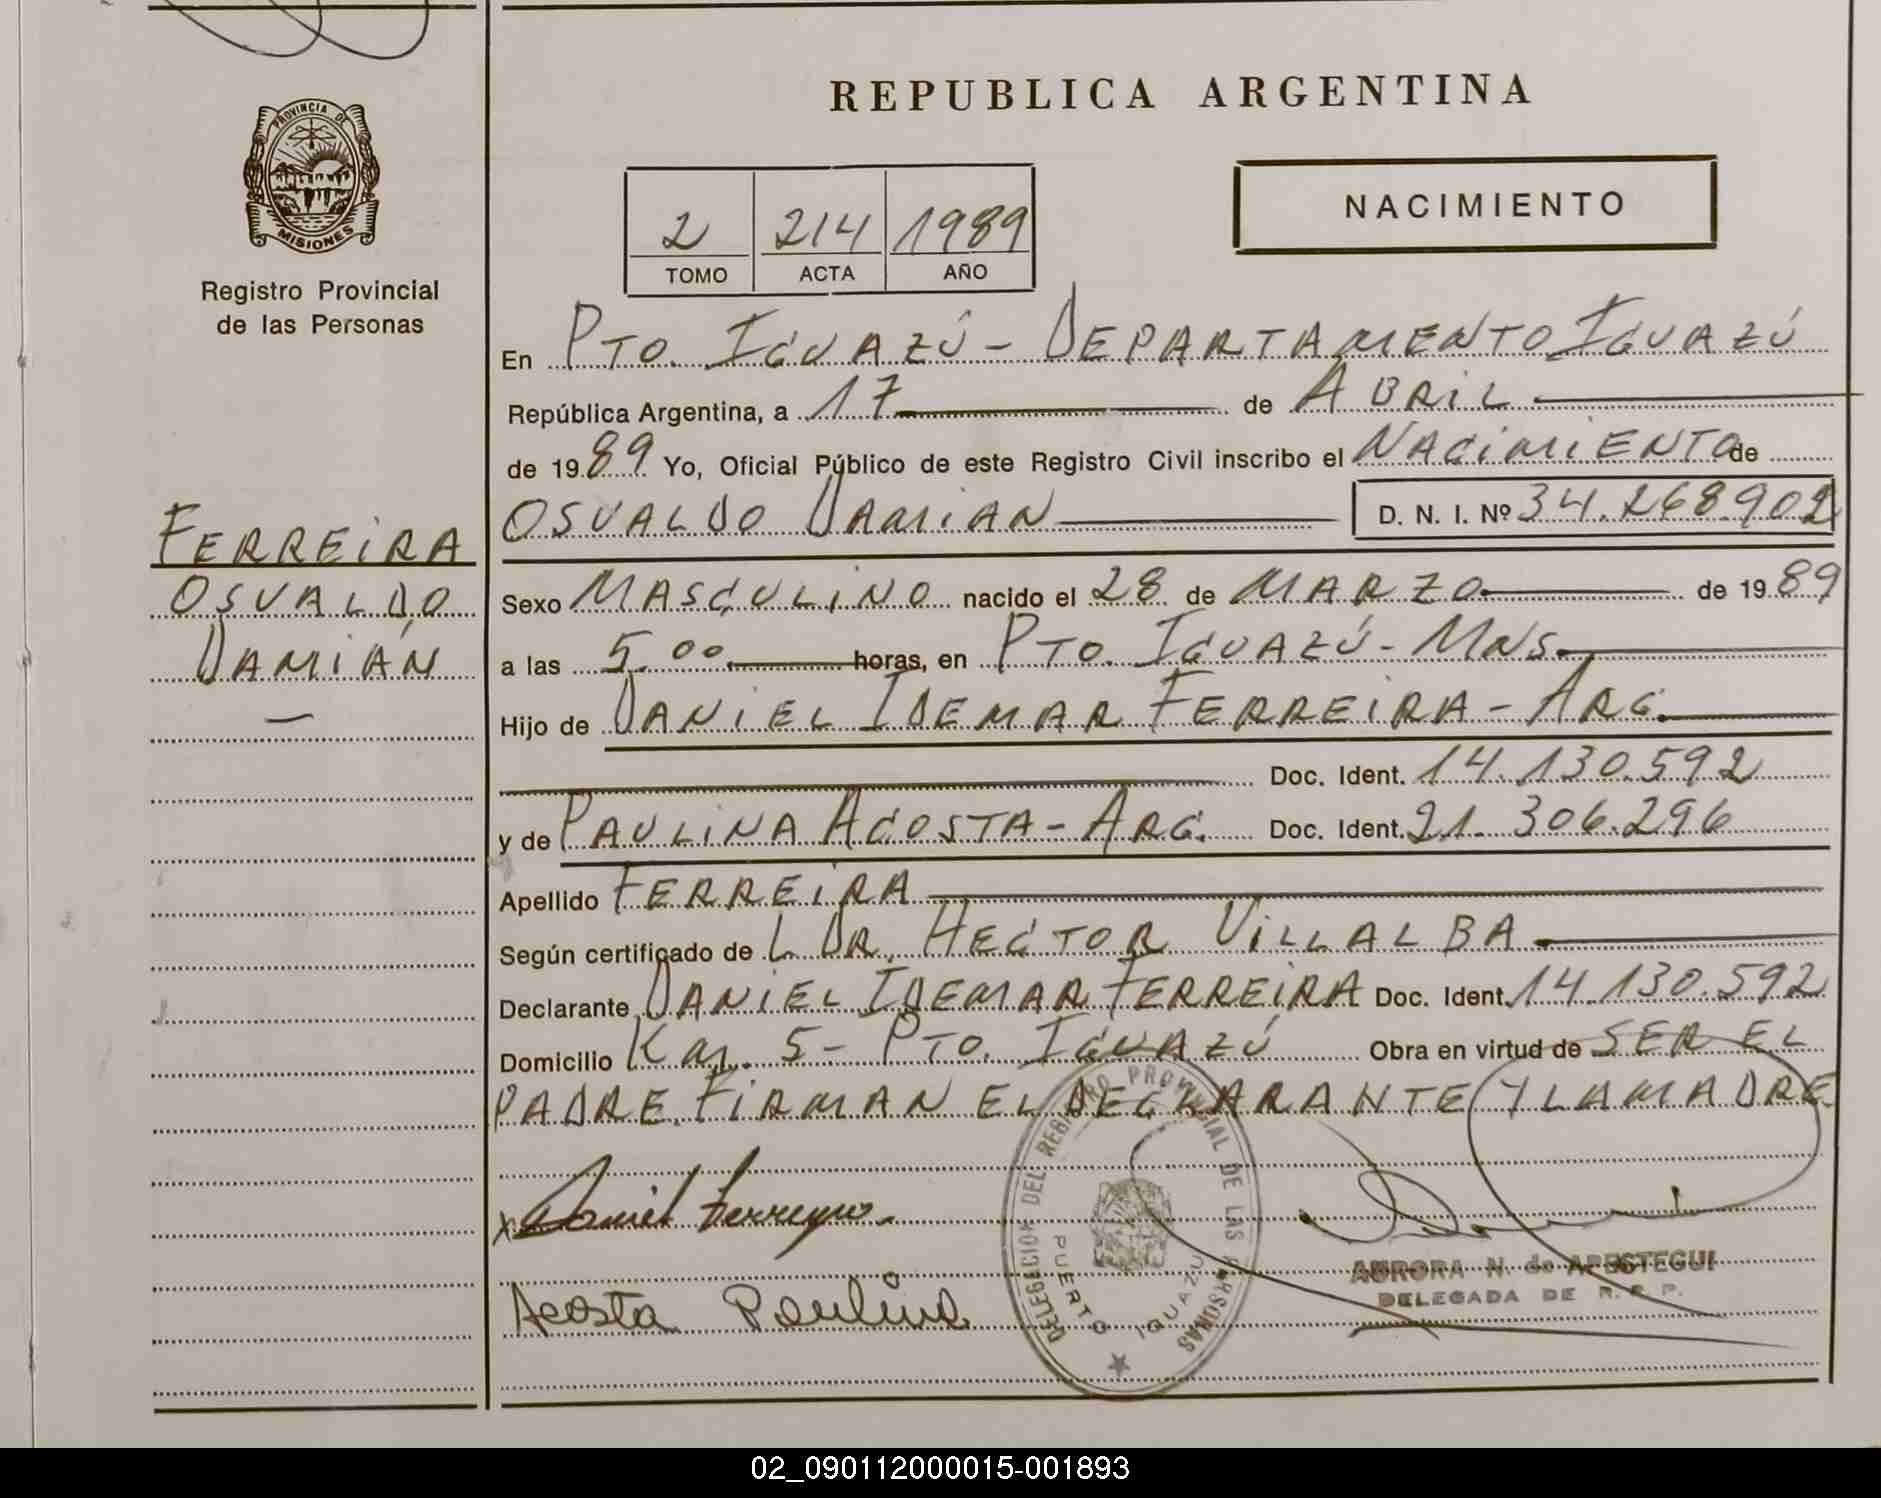 PROVINCIA DE
MISIONES
Registro Provincial
de las Personas
FERREIRA
OSVALDO
DAMIÁN
REPUBLICA ARGENTINA
2 214 1989
TOMO ACTA AÑO
NACIMIENTO
En PTO. IGUAZÚ - DEPARTAMENTO IGUAZÚ
República Argentina, a 17 de ABRIL
de 1989 Yo, Oficial Público de este Registro Civil inscribo el NACIMIENTO de
OSVALDO DAMIAN D. N. I. Nº 34.268902
Sexo MASCULINO nacido el 28 de MARZO de 1989
a las 5.00 horas, en PTO. IGUAZÚ - MNS.
Hijo de DANIEL IDEMAR FERREIRA - ARG.
Doc. Ident. 14.130.592
y de PAULINA ACOSTA - ARG. Doc. Ident. 21.306.296
Apellido FERREIRA
Según certificado de L DR. HECTOR VILLALBA
Declarante DANIEL IDEMAR FERREIRA Doc. Ident. 14.130.592
Domicilio Km. 5 - PTO. IGUAZÚ Obra en virtud de SER EL
PADRE. FIRMAN EL DECLARANTE Y LA MADRE.
x Daniel Ferreyra.
Acosta Paulina
DELEGACION DEL REGISTRO PROVINCIAL DE LAS PERSONAS
PUERTO IGUAZU
AURORA N. de APESTEGUI
DELEGADA DE R. P. P.
02_090112000015-001893